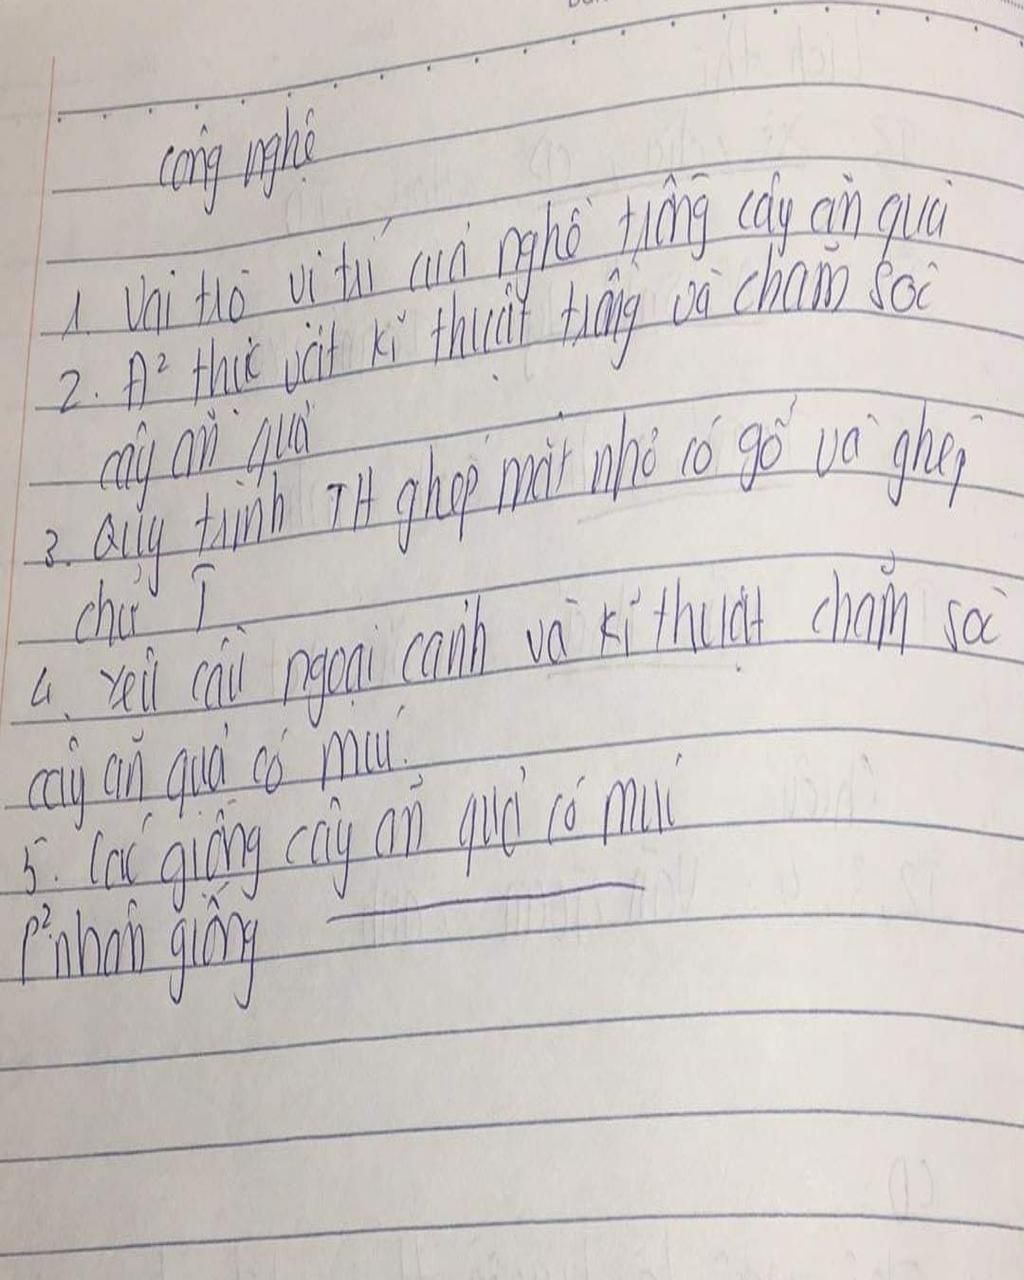 công nghệ
1. Vai trò vị trí của nghề trồng cây ăn quả
2. Đ² thực vật kĩ thuật trồng và chăm sóc
cây ăn quả
3. Quy trình TH ghép mắt nhỏ có gỗ và ghép
chữ T
4. Yêu cầu ngoại cảnh và kĩ thuật chăm sóc
cây ăn quả có múi.
5. Các giống cây ăn quả có múi
P² nhân giống